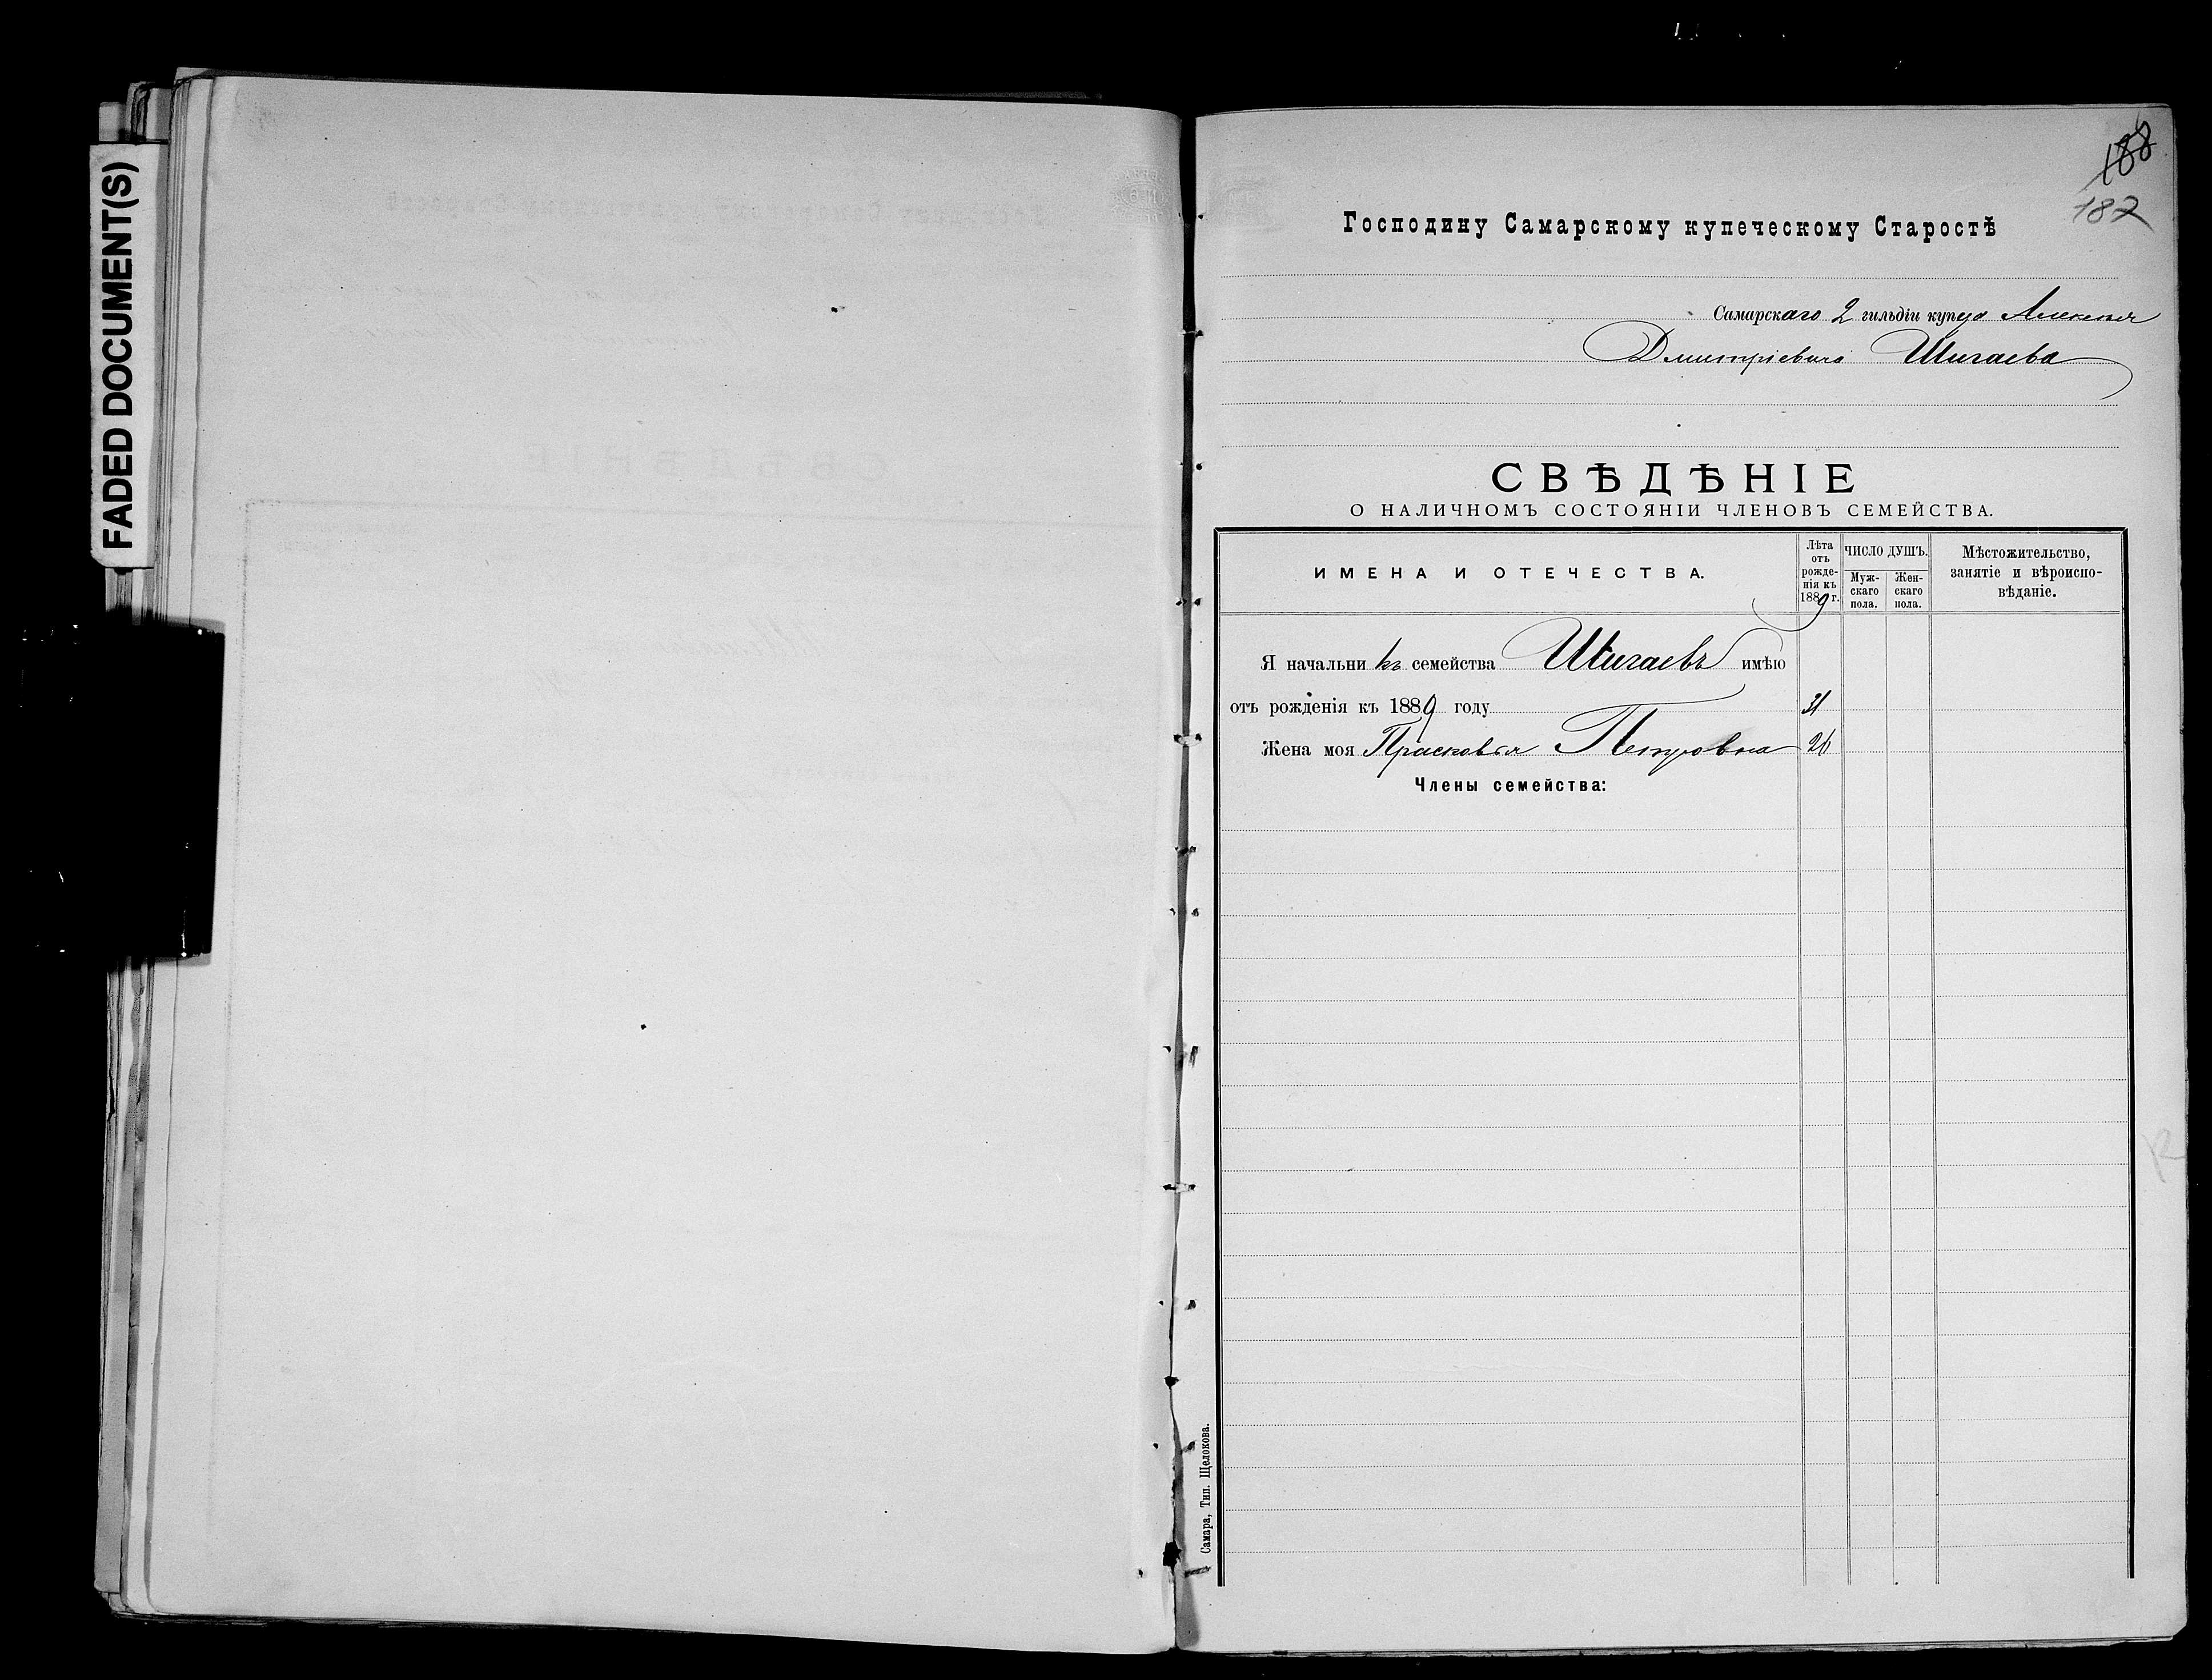 FADED DOCUMENT(S)
188
187
Господину Самарскому купеческому Старостѣ
Самарскаго 2 гильдіи купца Алексѣя
Дмитріевича Шигаева
СВѢДѢНІЕ
О НАЛИЧНОМЪ СОСТОЯНІИ ЧЛЕНОВЪ СЕМЕЙСТВА.
ИМЕНА И ОТЕЧЕСТВА.
Лѣта
отъ
рожде-
нія къ
1889 г.
ЧИСЛО ДУШЪ.
Муж-
скаго
пола.
Жен-
скаго
пола.
Мѣстожительство,
занятіе и вѣроиспо-
вѣданіе.
Я начальникъ семейства Шигаевъ имѣю
отъ рожденія къ 1889 году 31
Жена моя Прасковья Петровна 26
Члены семейства:
Самара, Тип. Щелокова.